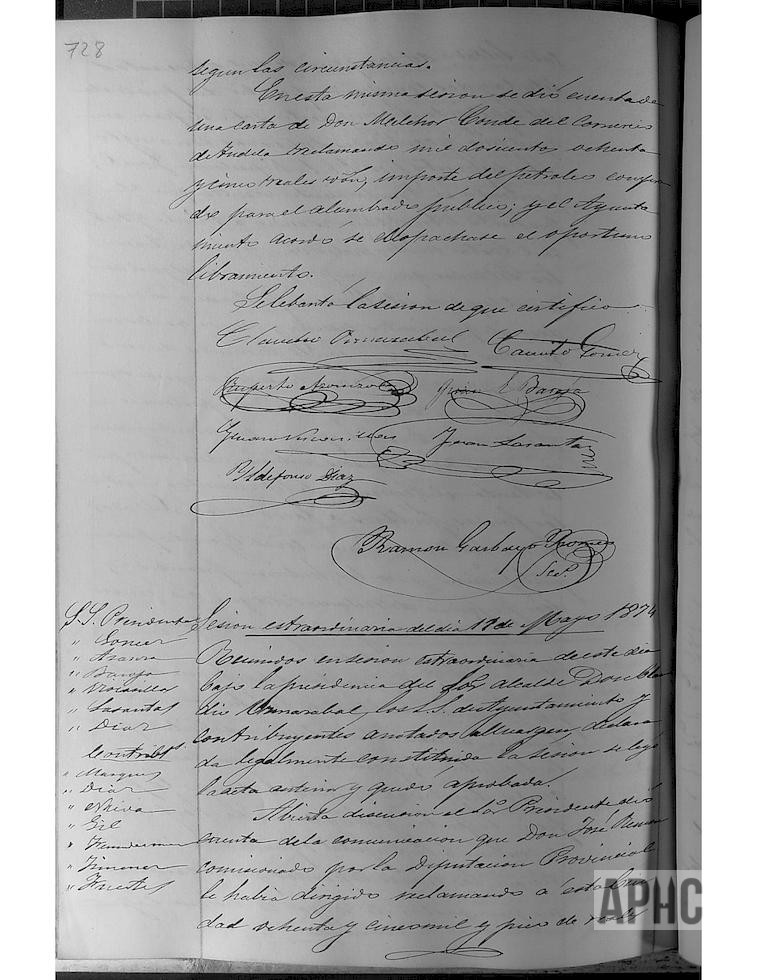 728
segun las circunstancias.
En esta misma sesion se dió cuenta de
una carta de Don Melchor Conde del Comercio
de Tudela reclamando mil doscientos ochenta
y cinco reales von, importe del petroleo compra
do para el alumbrado publico; y el Ayunta
miento acordó se despachase el oportuno
libramiento.
Se lebantó la sesion de que certifico
Claudio
Canuto Gomez
Ruperto
Juan
Juan Lasanta
Yldefonso Diaz
Ramon Garbayo
Sec.º
Sesion estraordinaria del dia 18 de Mayo 1874
S.S. Presidente
" Gomez
" Azanza
" Baroja
"
" Lasanta
" Diaz
Contribs.
" Marques
" Diaz
"
" Gil
"
" Jimenez
" Fuentes
Reunidos en sesion estraordinaria de este dia
bajo la presidencia del Sor Alcalde Don Clau
dio los S.S. de Ayuntamiento y
contribuyentes anotados al margen, declara
da legalmente constituida la sesion se leyó
la acta anterior y quedó aprobada.
Abierta discusion el Sor Presidente dió
cuenta de la comunicacion que Don José
comisionado por la Diputacion Provincial
le habia dirigido reclamando a esta Ciu
dad ochenta y cinco mil y pico de reales
APHC